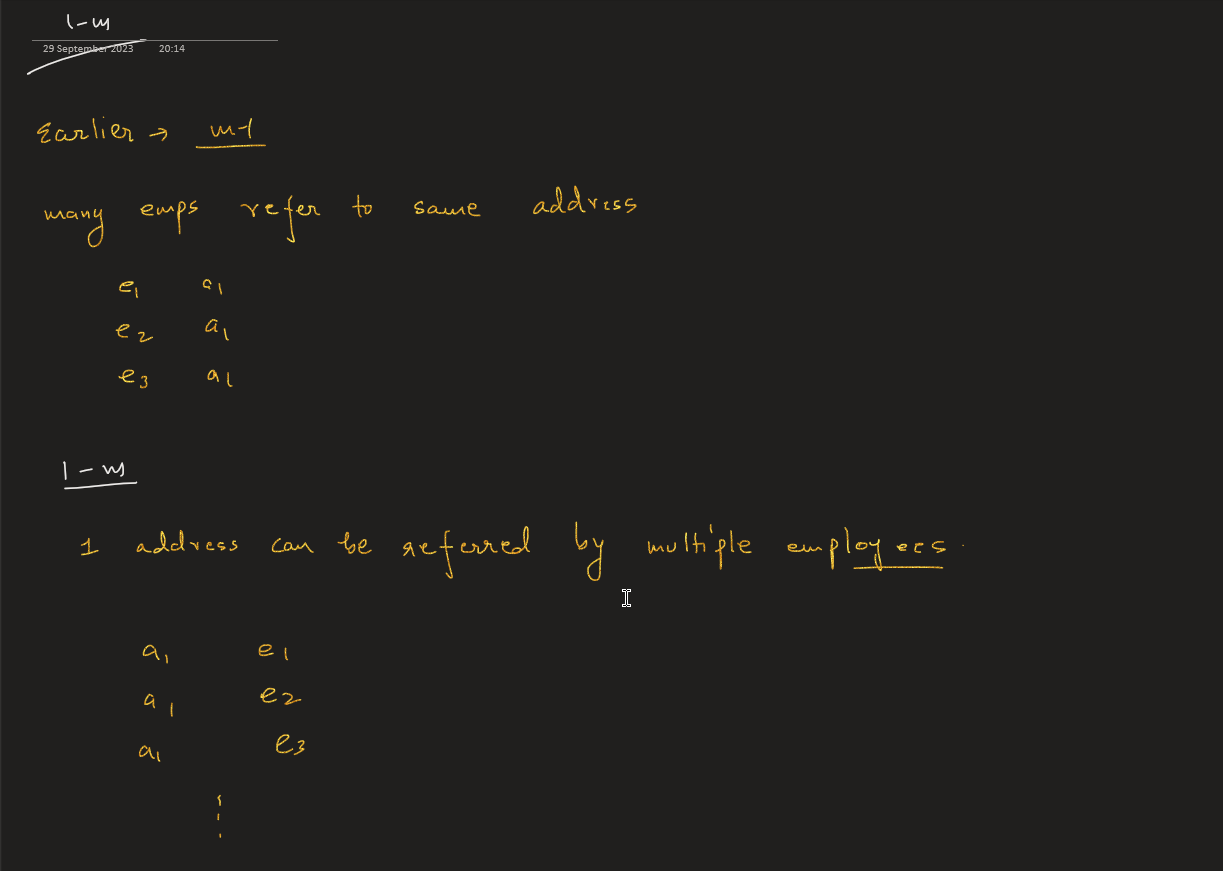 1-m
29 September 2023 20:14
Earlier → m-1
many emps refer to same address
e1 a1
e2 a1
e3 a1
1-m
1 address can be referred by multiple employees.
a1 e1
a1 e2
a1 e3